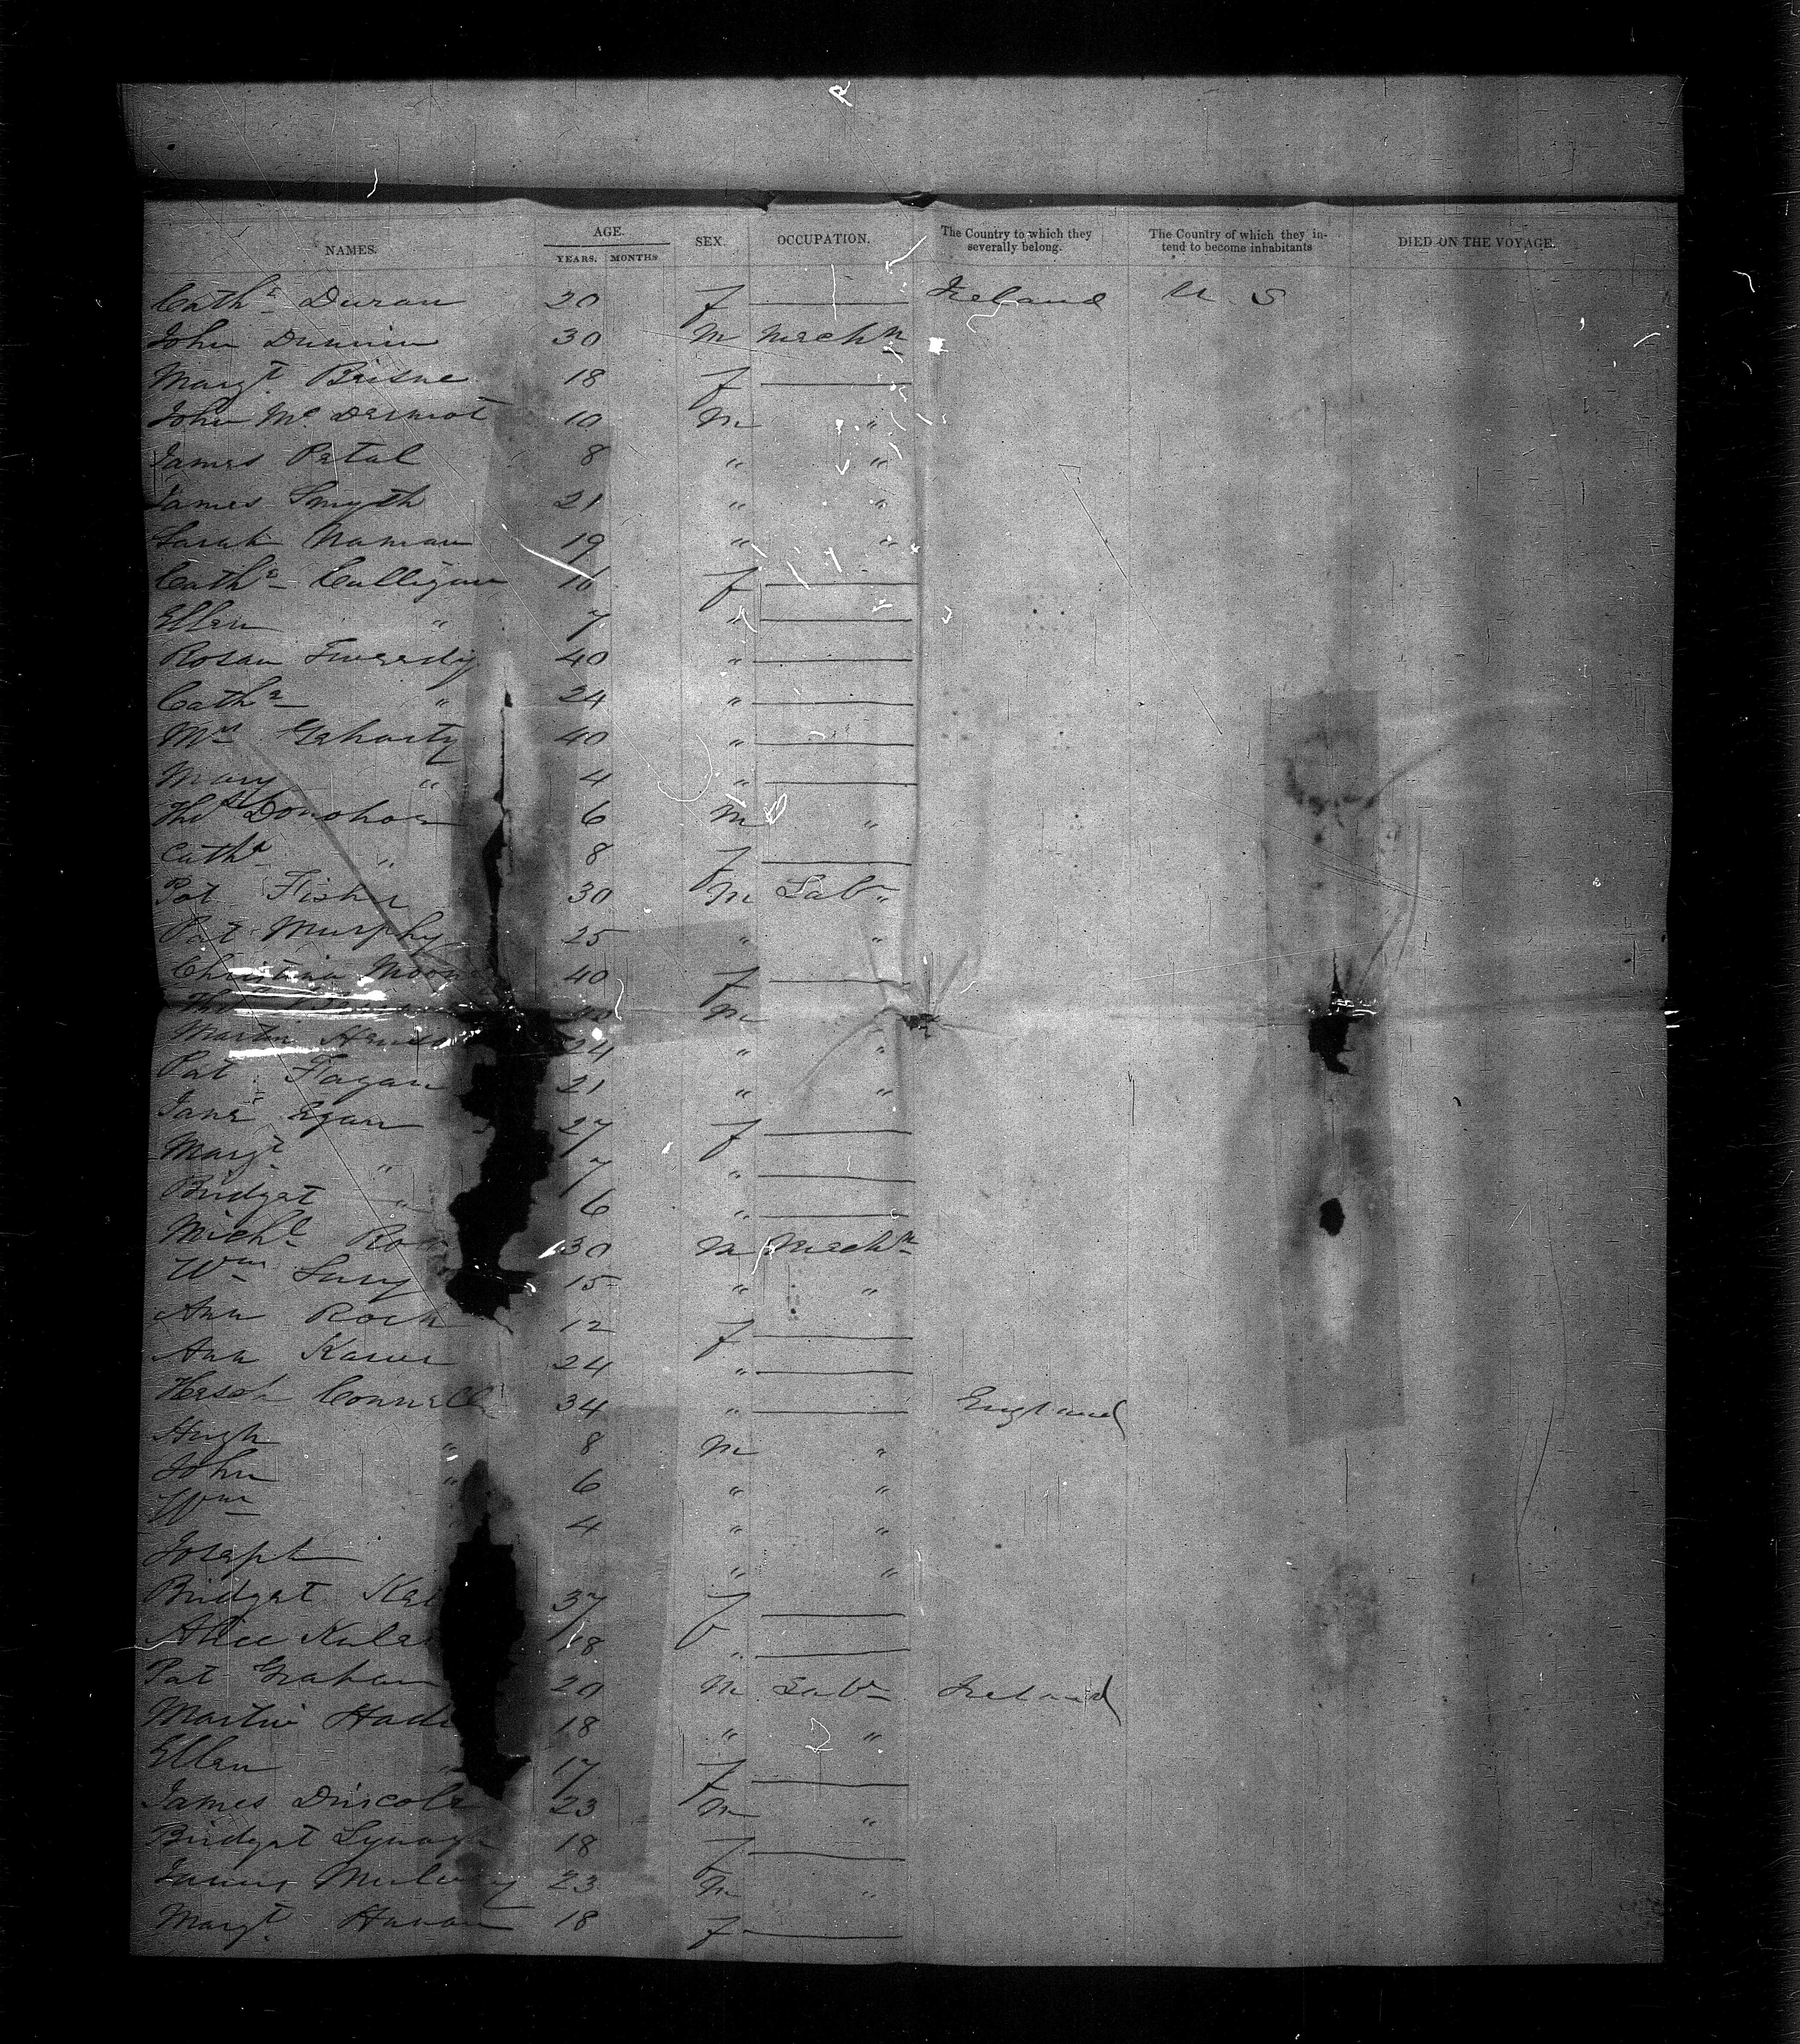 NAMES. AGE. YEARS. MONTHS SEX. OCCUPATION. The Country to which they severally belong. The Country of which they intend to become inhabitants DIED ON THE VOYAGE.
Cathn Duran 20 f Ireland U. S
John Dunnin 30 M Mechn
Margt Brisne 18 f
John Mc Dermot 10 M "
James Petal 8 " "
James Smyth 21 " "
Sarah Naman 19 " "
Cathn Culligan f
Ellen " 7 "
Rosan Tweedy 40 "
Cathn " 24 "
Mrs Gaharty 40 "
Mary " 4 "
Thos Donohoe 6 M "
Cathn " 8 f
Pat Fisher 30 M Labr
Pat Murphy 25 " "
Christina 40 f
Thos m
Martin 24 " "
Pat Flagan 21 " "
Jane Egan 27 f
Margt " 7 "
Bridget " 6 "
Michl 30 M Mechn
Wm 15 " "
Ann Rock 12 f
Ann 24 "
Connell 34 " England
Hugh " 8 M "
John " 6 " "
Wm 4 " "
Joseph " "
Bridget 37 f
Alice 18 "
Pat Graham 20 M Labr Ireland
Martin 18 " "
Ellen " 17 f
James Driscole 23 M "
Bridget 18 f
James 23 M "
Margt 18 f